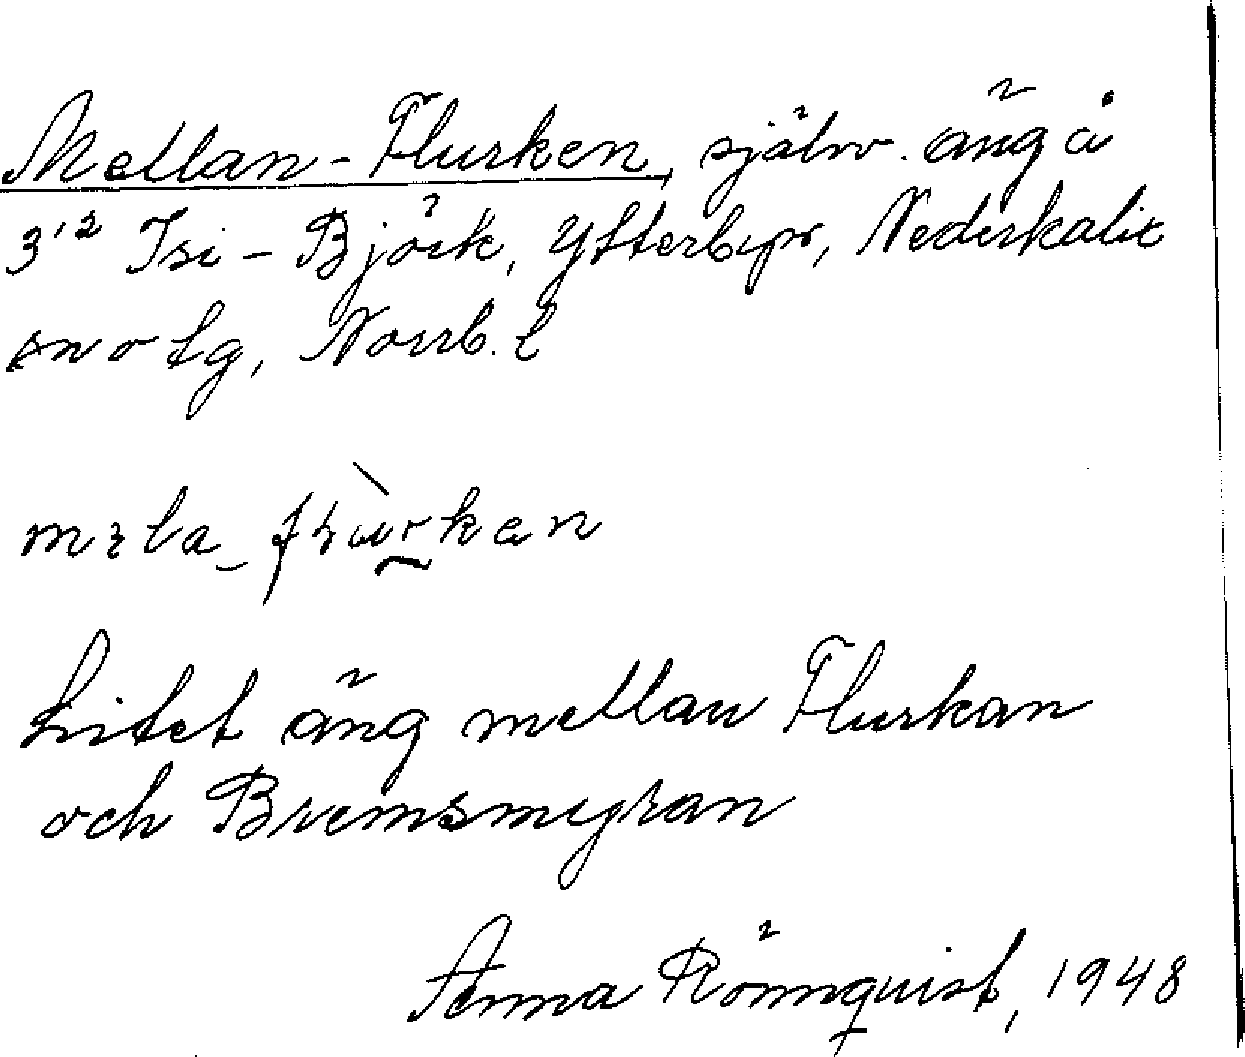 Mellan-Flurken, självv. äng å
3¹² Isi-Björk, Ytterbyn, Nederkalix
sn o tg, Norrb. l
la
Litet äng mellan Flurkan
och Bremsmyran
Anna Rönnquist, 1948